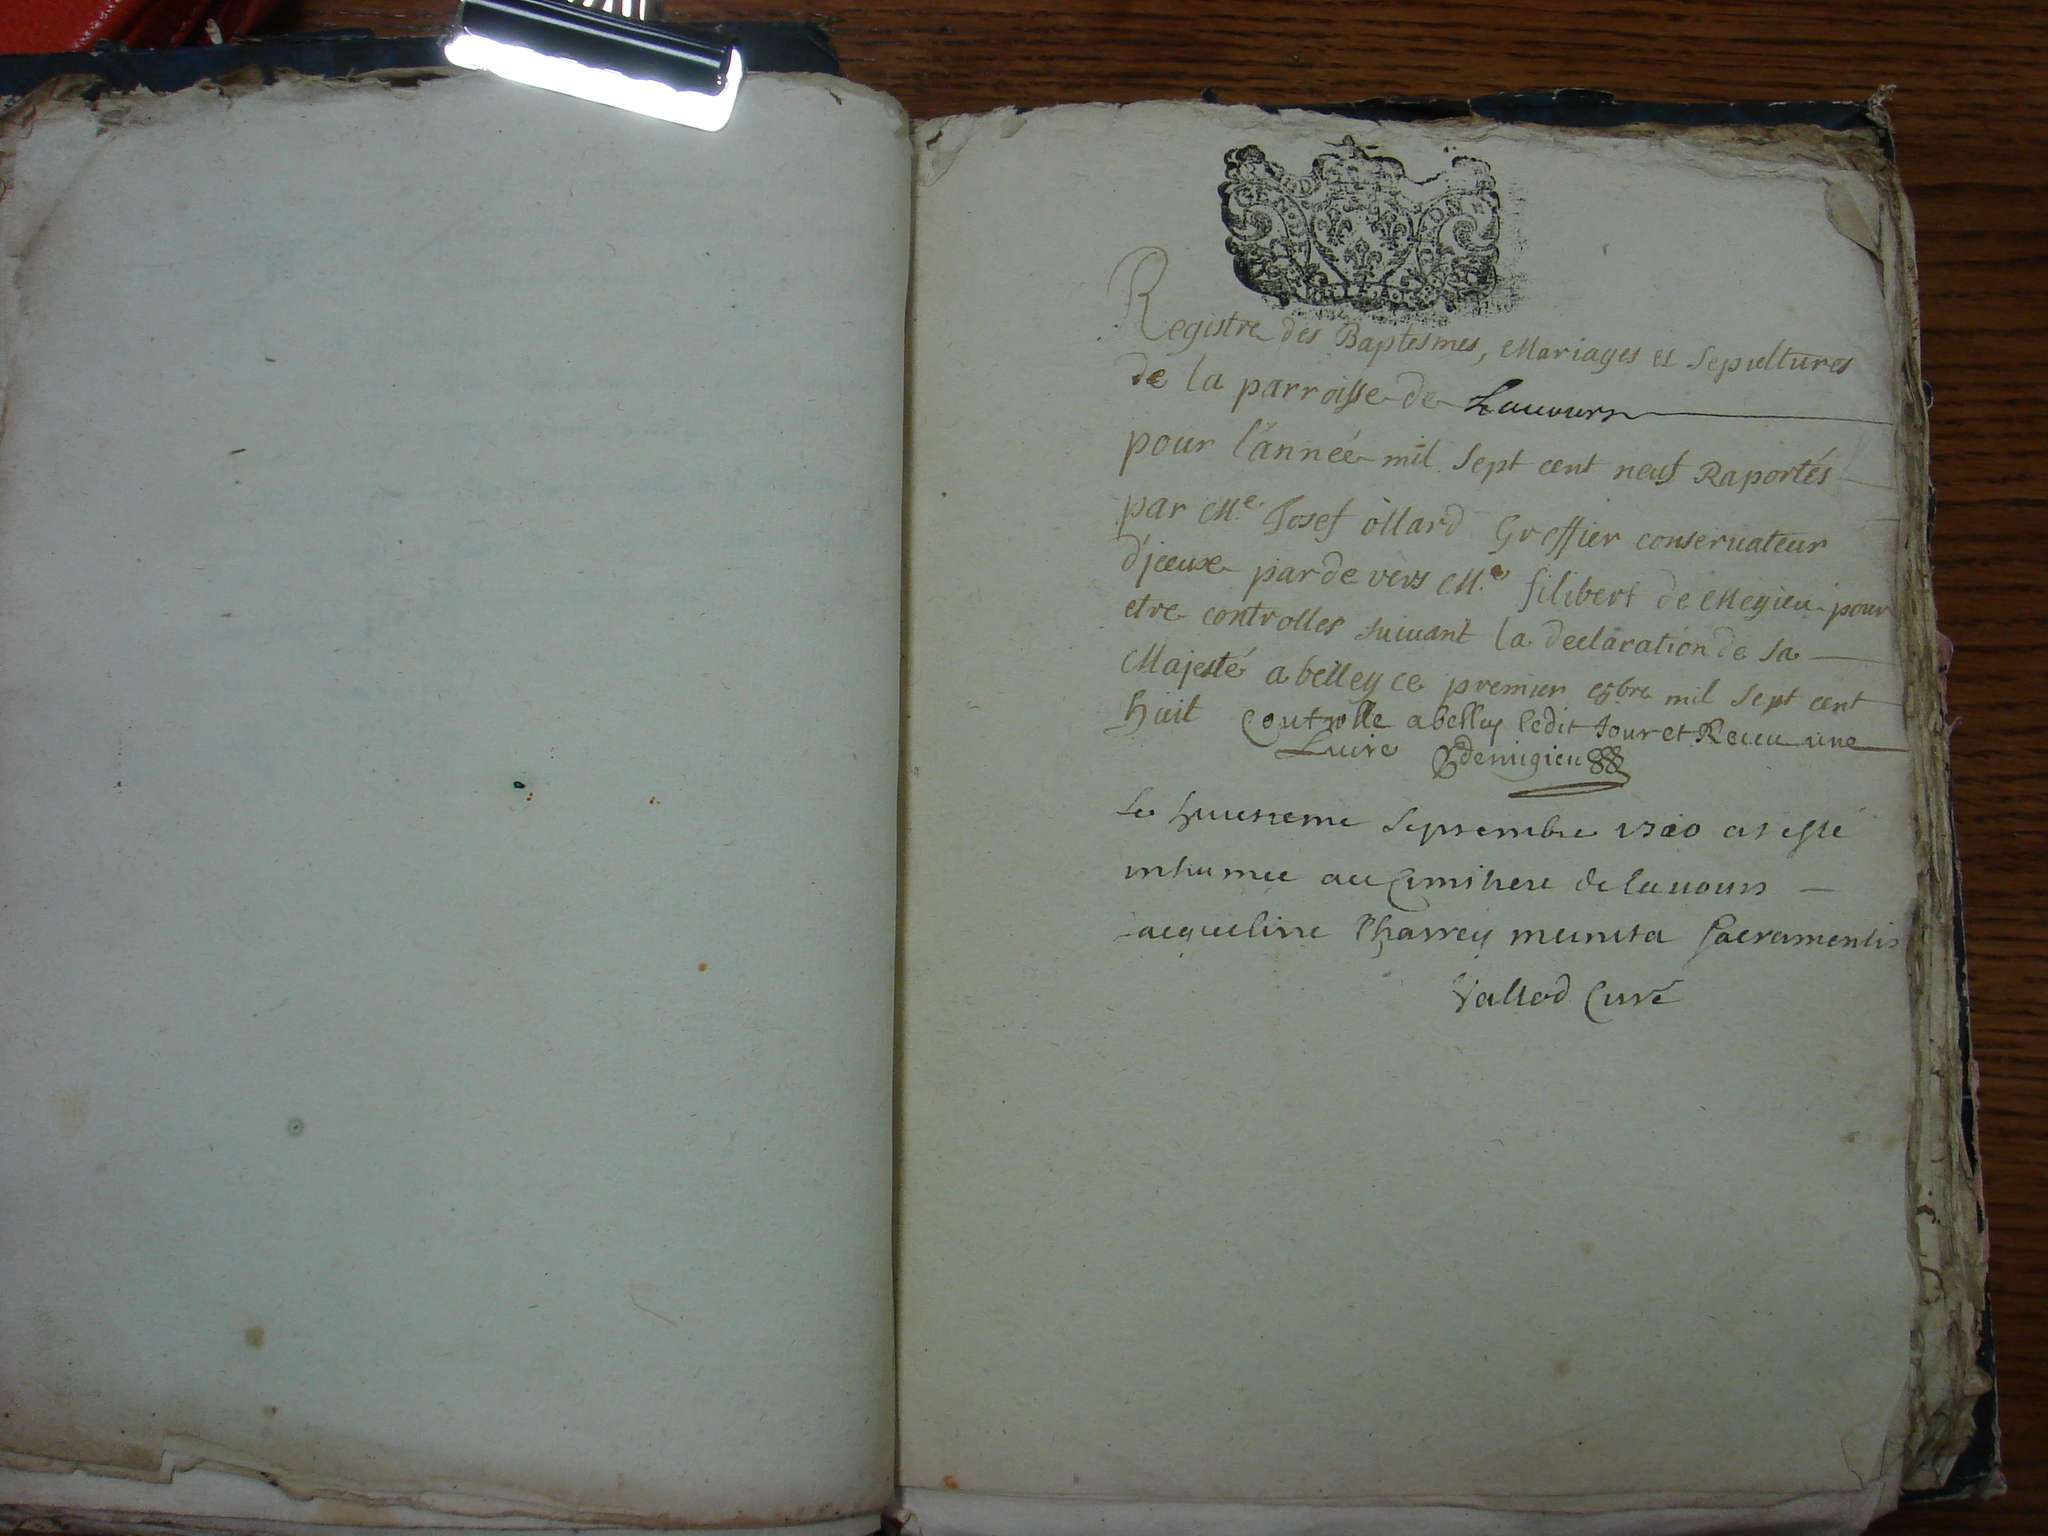 Registre des Baptesmes, Mariages et Sepultures
de la parroisse de Lauours
pour l'année mil sept cent neuf Raportés
par Me Josef ollard Greffier conseruateur
d'jceux parde vers Me filibert de Megieu pour
etre controlles suiuant la declaration de sa
Majesté a belley ce premier mil sept cent
huit Controlle a belley ledit Jour et Receu une
Liure demigieu
Le huictieme Septembre a esté
inhumee au Cimitiere de lauours
Jacqueline Charrey munita Sacramentis
Vallod Curé